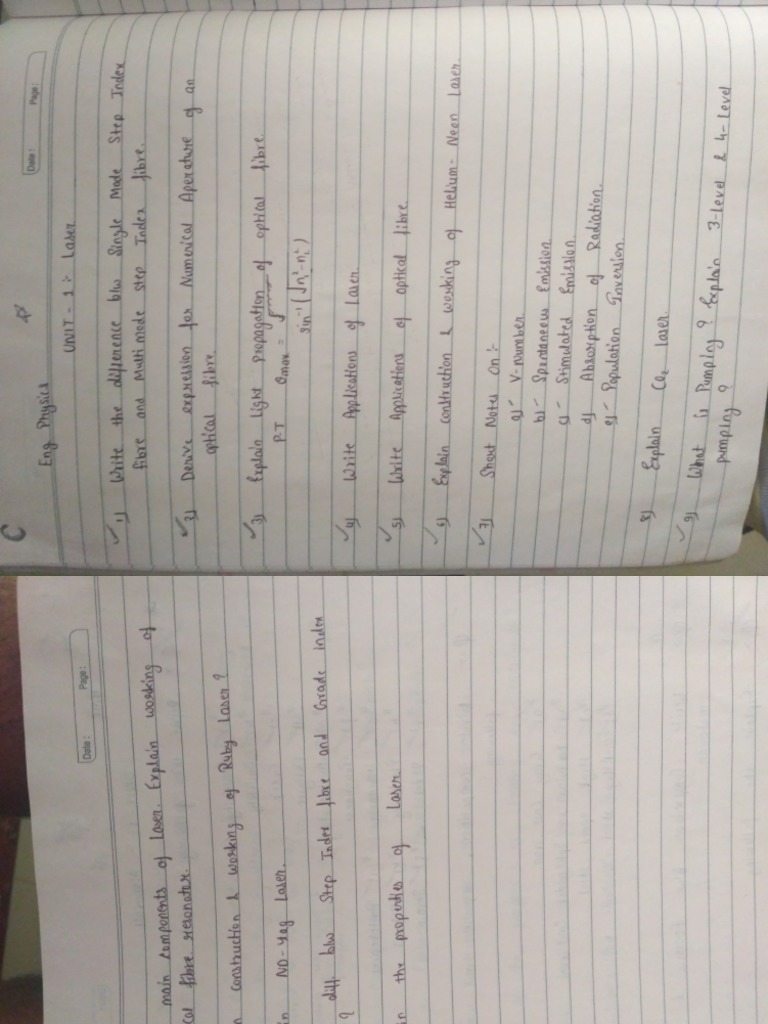 C
Date : Page :
Eng. Physics
UNIT - 1 :- Laser
1) Write the difference b/w Single Mode Step Index
fibre and Multi mode step Index fibre.
2) Derive expression for Numerical Aperature of an
optical fibre.
3) Explain Light Propagation of optical fibre.
P.T θmax =
sin⁻¹ (√n₁² - n₂²)
4) Write Applications of Laser.
5) Write Applications of optical fibre.
6) Explain construction & working of Helium - Neon Laser.
7) Short Notes on :-
a) - V-number
b) - Spontaneous Emission
c) - Stimulated Emission.
d) Absorption of Radiation.
e) - Population Inversion.
8) Explain CO₂ laser.
9) What is Pumping ? Explain 3-level & 4-level
pumping ?
Date : Page :
main components of laser. Explain working of
cal fibre resonator.
n construction & working of Ruby Laser ?
in ND-Yag Laser.
diff. b/w Step Index fibre and Grade index
?
in the properties of Laser.